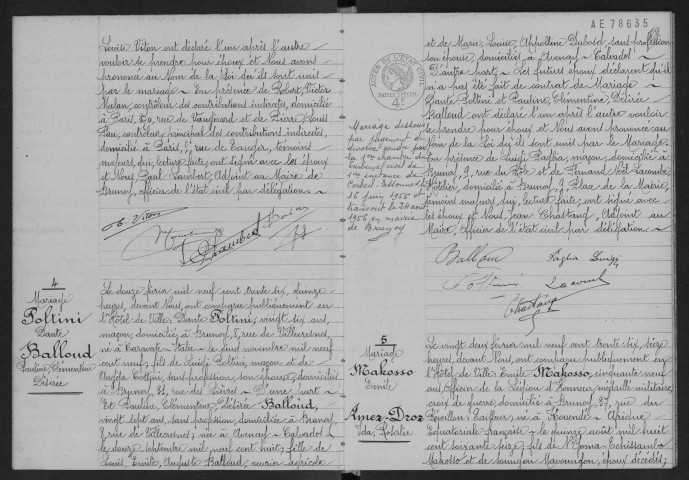 Louise Viton ont déclaré l'un après l'autre
vouloir se prendre pour époux et Nous avons
prononcé au Nom de la Loi qu'ils sont unis
par le mariage. En présence de Robert, Victor
contrôleur des contributions indirectes, domicilié
à Paris, rue de Vaugirard et de Pierre, Louis
contrôleur principal des contributions indirectes,
domicilié à Paris, rue de Tanger, témoins
majeurs, qui, lecture faite, ont signé avec les époux
et Nous, Paul Lambert, Adjoint au Maire de
Brunoy, officier de l'état civil par délégation.
4
Mariage
Poltini
Dante
Balloud
Pauline, Clémentine
Désirée
Le douze février mil neuf cent trente six, quinze
heures, devant Nous, ont comparu publiquement en
l'Hôtel de Ville: Dante Poltini, vingt six ans,
maçon, domicilié à Brunoy, 5, rue de Villecresnes,
né à Caravate Italie le cinq novembre mil neuf
cent neuf; fils de Luigi Poltini, maçon et de
sans profession, son épouse, domiciliés
à Brunoy, 21, rue des D'une part
Et Pauline, Clémentine, Désirée Balloud,
vingt sept ans, sans profession, domiciliée à Brunoy,
rue de Villecresnes; née à Avenay Calvados
le douze septembre mil neuf cent huit; fille de
Louis, Emile, Auguste Balloud, ouvrier agricole
AE 78635
et de Marie, Louise, Appolline Dubosq, sans profession
son épouse, domiciliés à Avenay Calvados
D'autre part. Les futurs époux déclarent qu'il
n'a pas été fait de contrat de Mariage.
Dante Poltini et Pauline, Clémentine, Désirée
Balloud ont déclaré l'un après l'autre vouloir
se prendre pour époux et Nous avons prononcé au
Nom de la Loi qu'ils sont unis par le Mariage.
En présence de Luigi Paglia, maçon, domicilié à
Brunoy, 9, rue du Rôle et de Fernand Lacombe,
hôtelier, domicilié à Brunoy, 9, Place de la Mairie,
témoins majeurs qui, lecture faite, ont signé avec
les époux et Nous, Jean Chastang, Adjoint au
Maire, Officier de l'état civil par délégation
Mariage dissous
par jugement de
divorce rendu par
la 1ère chambre du
tribunal civil de
1ère instance de
Corbeil-Essonnes le
16 juin 1955 et
transcrit le 24 août
1956 en mairie
de Brunoy
Balloud Paglia Luigi
Poltini Lacombe
Chastang
5
Mariage
Makosso
Emile
Amez-Droz
Ida, Rosalie
Le vingt deux février mil neuf cent trente six, seize
heures, devant Nous, ont comparu publiquement en
l'Hôtel de Ville: Emile Makosso, cinquante neuf
ans, Officier de la Légion d'Honneur, médaillé militaire,
croix de guerre, domicilié à Brunoy, 27, rue du
Réveillon, né à Afrique
Equatoriale française le quinze août mil huit
cent soixante seize; fils de
Makosso et de époux décédés;